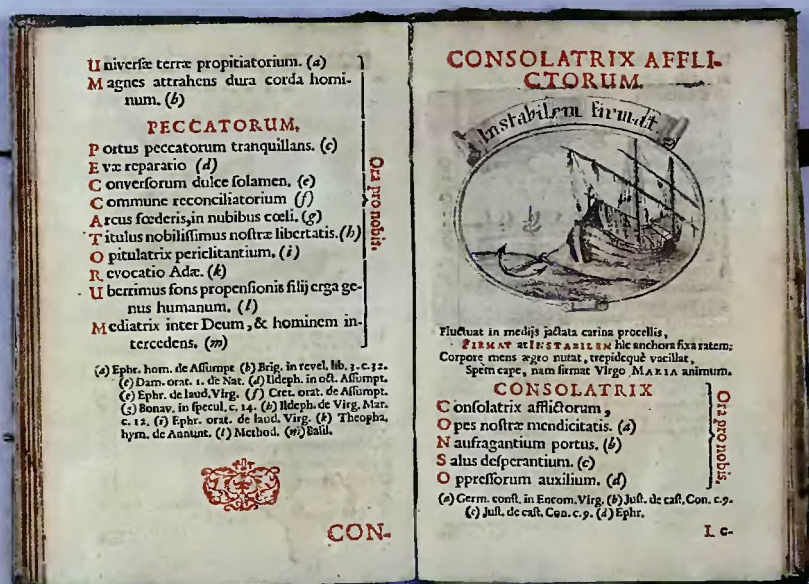 Universæ terræ propitiatorium. (a)
Magnes attrahens dura corda homi-
num. (b)
PECCATORUM.
Portus peccatorum tranquillans. (c)
Evæ reparatio (d)
Conversorum dulce solamen. (e)
Commune reconciliatorium (f)
Arcus fœderis, in nubibus cœli. (g)
Titulus nobilissimus nostræ libertatis. (h)
Opitulatrix periclitantium. (i)
Revocatio Adæ. (k)
Uberrimus fons propensionis filij erga ge-
nus humanum. (l)
Mediatrix inter Deum, & hominem in-
tercedens. (m)
Ora pro nobis.
(a) Ephr. hom. de Assumpt (b) Brig. in revel. lib. 3. c. 32.
(c) Dam. orat. 1. de Nat. (d) Ildeph. in oct. Assumpt.
(e) Ephr. de laud. Virg. (f) Cret. orat. de Assumpt.
(g) Bonav. in specul. c. 14. (h) Ildeph. de Virg. Mar.
c. 12. (i) Ephr. orat. de laud. Virg. (k) Theopha.
hym. de Annunt. (l) Method. (m) Basil.
CON-
CONSOLATRIX AFFLI-
CTORUM.
Instabilem firmat
Fluctuat in medijs jactata carina procellis,
FIRMAT at INSTABILEM hic anchora fixa ratem;
Corpore mens ægro nutat, trepidequè vacillat,
Spem cape, nam firmat Virgo MARIA animum.
CONSOLATRIX
Consolatrix afflictorum,
Opes nostræ mendicitatis. (a)
Naufragantium portus. (b)
Salus desperantium. (c)
Oppressorum auxilium. (d)
Ora pro nobis.
(a) Germ. const. in Encom. Virg. (b) Just. de cast. Con. c. 9.
(c) Just. de cast. Con. c. 9. (d) Ephr.
L c-